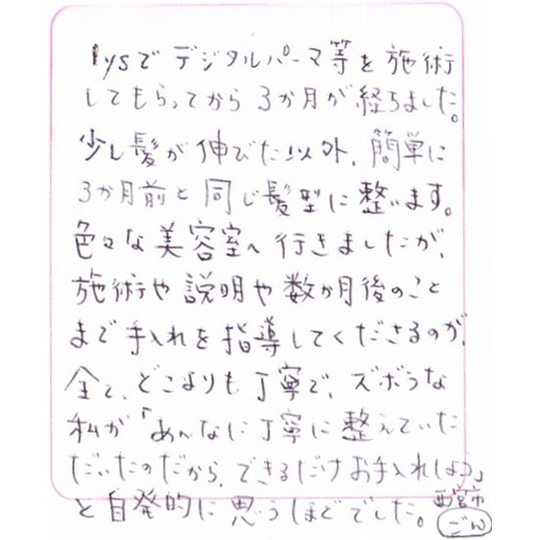 iysでデジタルパーマ等を施術
してもらってから3か月が経ちました。
少し髪が伸びた以外、簡単に
3か月前と同じ髪型に整います。
色々な美容室へ行きましたが、
施術や説明や数か月後のこと
まで手入れを指導してくださるのが、
全て、どこよりも丁寧で、ズボラな
私が「あんなに丁寧に整えていた
だいたのだから、できるだけお手入れしよう」
と自発的に思うほどでした。
西宮市
ごん